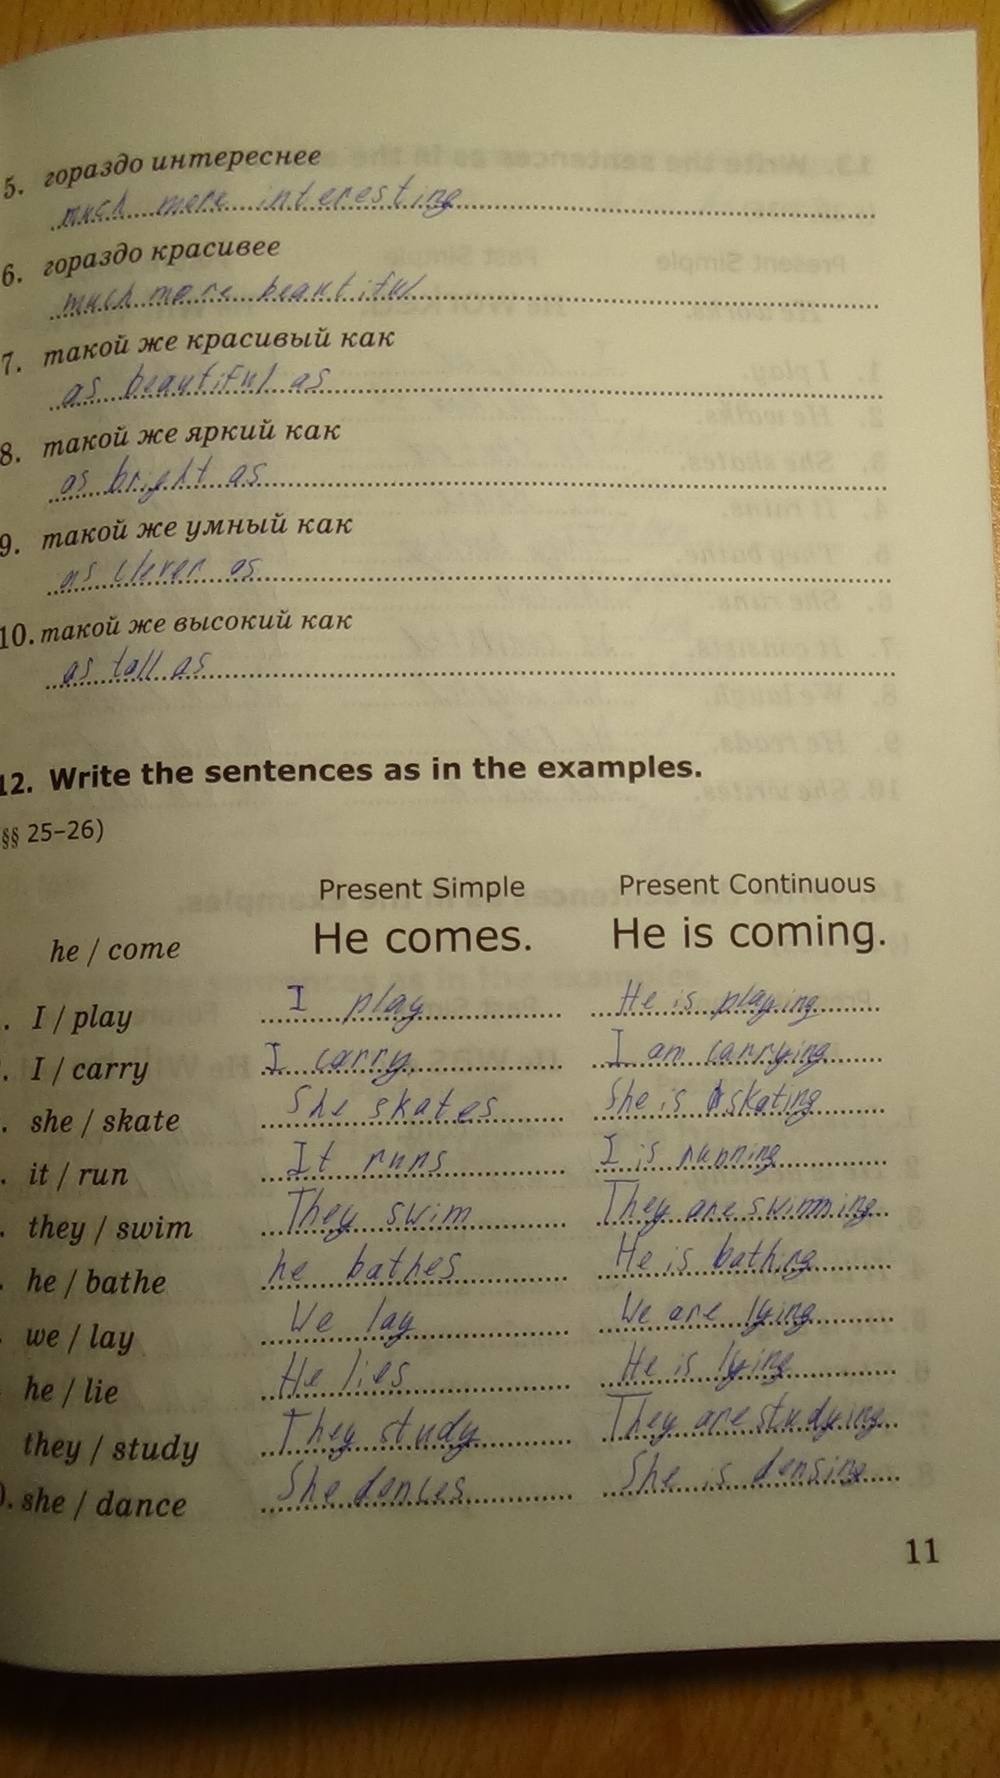 5. гораздо интереснее
much more interesting
6. гораздо красивее
much more beautiful
7. такой же красивый как
as beautiful as
8. такой же яркий как
as bright as
9. такой же умный как
as clever as
10. такой же высокий как
as tall as
12. Write the sentences as in the examples.
§§ 25–26)
Present Simple Present Continuous
he / come He comes. He is coming.
. I / play I play He is playing
. I / carry I carry. I am carrying
. she / skate She skates She is skating
. it / run It runs I is running
. they / swim They swim They are swimming
. he / bathe he bathes He is bathing
. we / lay We lay We are lying
he / lie He lies He is lying
they / study They study They are studying
). she / dance She dences She is densing
11